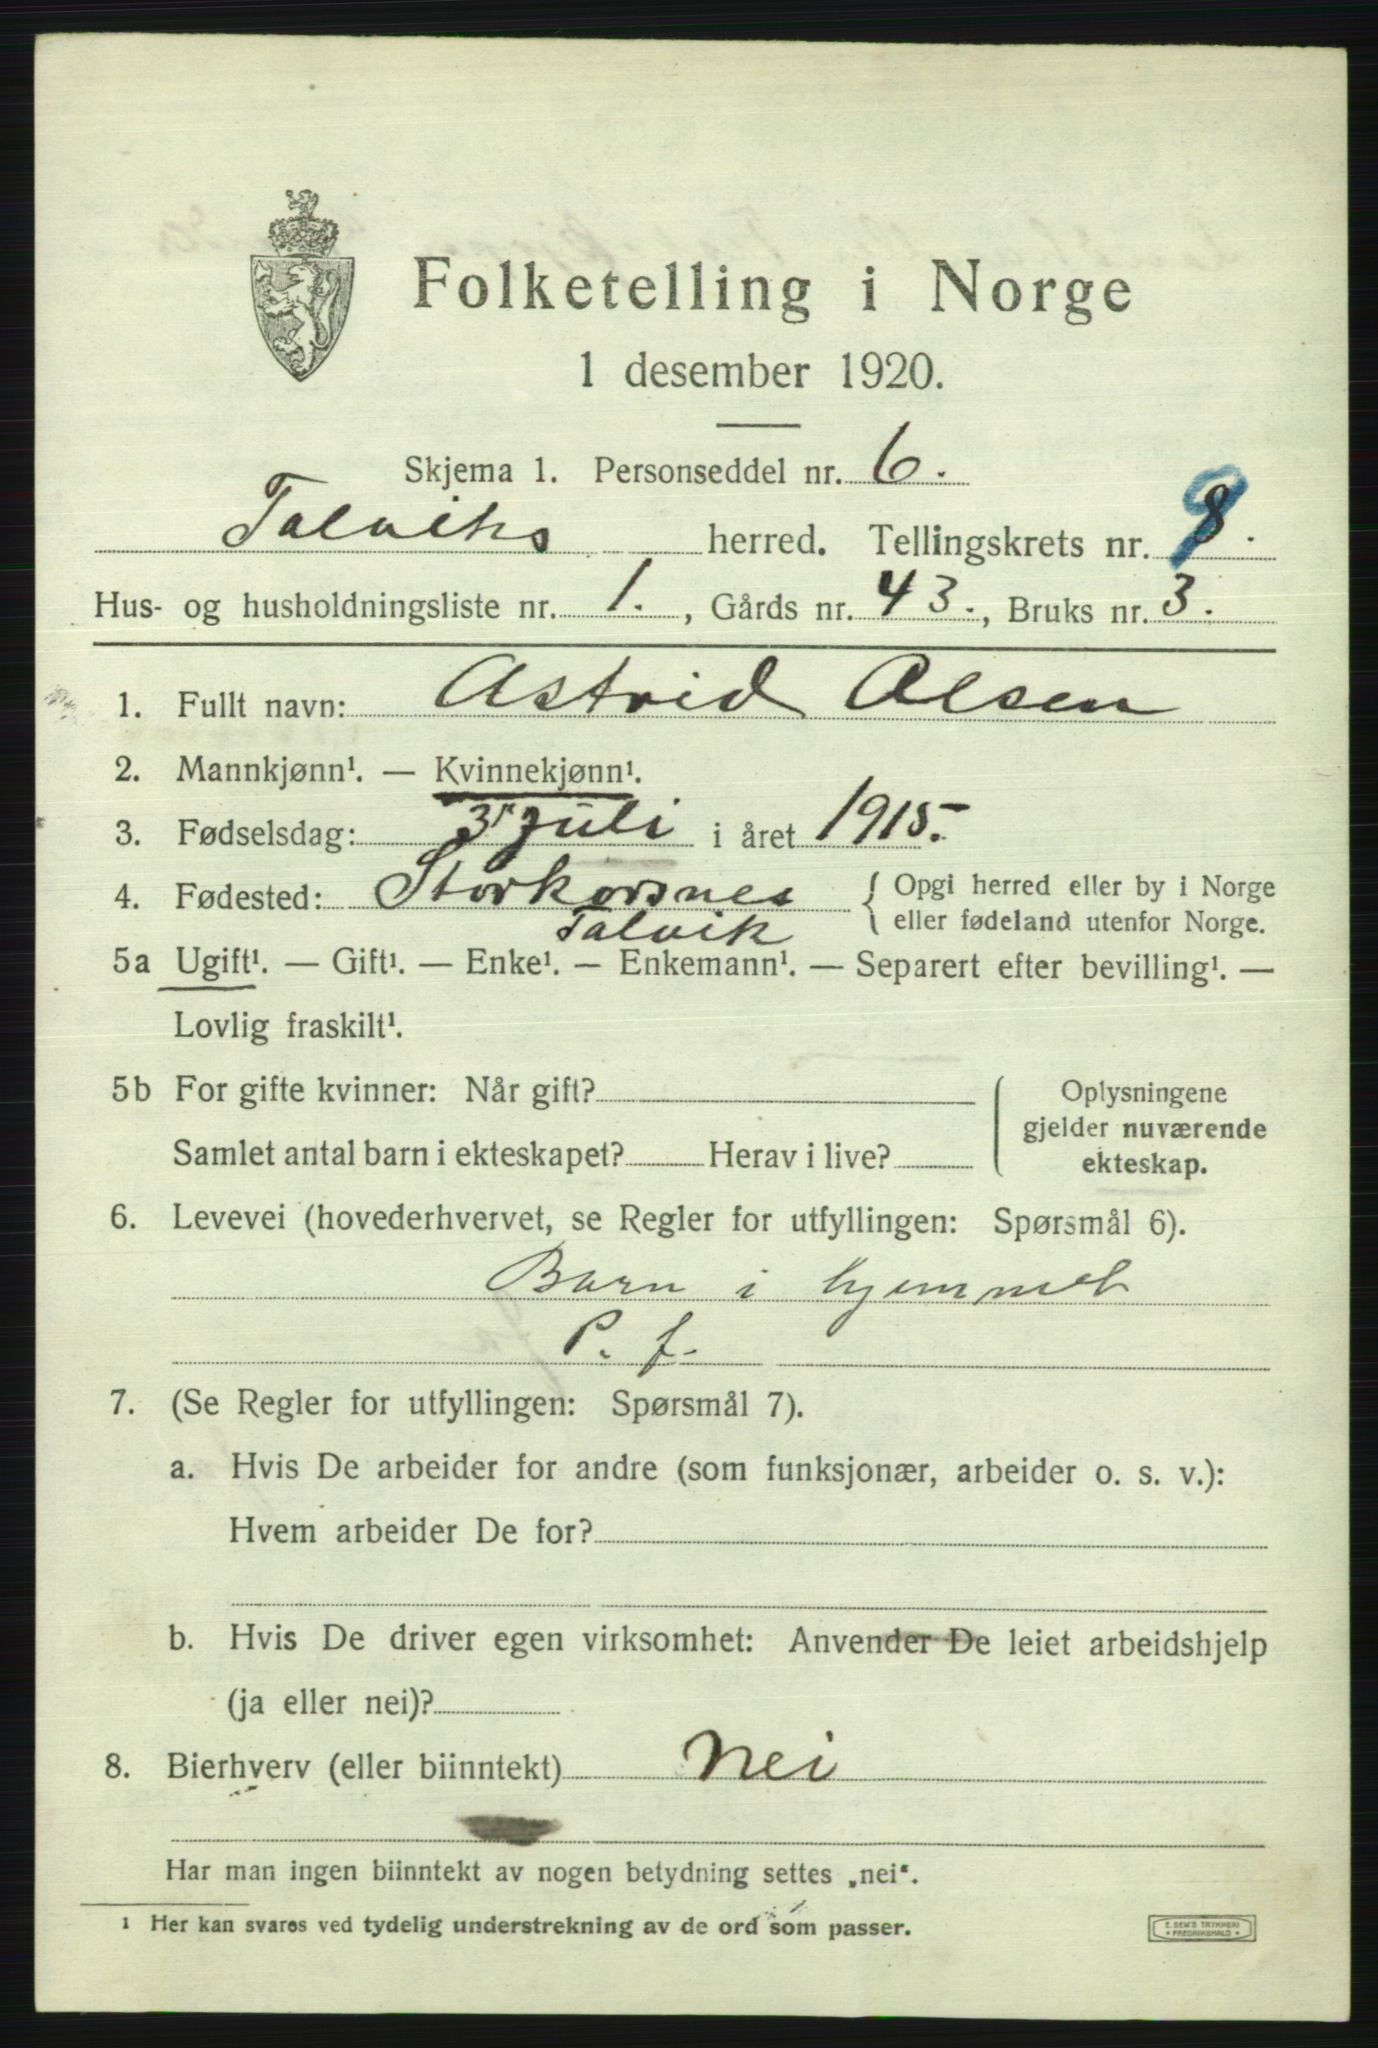 Folketelling i Norge
1 desember 1920.
Skjema 1. Personseddel nr. 6.
Talviks herred. Tellingskrets nr. 8.
Hus- og husholdningsliste nr. 1., Gårds nr. 43., Bruks nr. 3.
1. Fullt navn: Astrid Olsen
2. Mannkjønn¹. — Kvinnekjønn¹.
3. Fødselsdag: 3 Juli i året 1915.
4. Fødested: Storkorsnes { Opgi herred eller by i Norge
eller fødeland utenfor Norge.
Talvik
5a Ugift¹. — Gift¹. — Enke¹. — Enkemann¹. — Separert efter bevilling¹. —
Lovlig fraskilt¹.
5b For gifte kvinner: Når gift?
Samlet antal barn i ekteskapet? Herav i live?
Oplysningene
gjelder nuværende
ekteskap.
6. Levevei (hovederhvervet, se Regler for utfyllingen: Spørsmål 6).
Barn i hjemmet
P. f.
7. (Se Regler for utfyllingen: Spørsmål 7).
a. Hvis De arbeider for andre (som funksjonær, arbeider o. s. v.):
Hvem arbeider De for?
b. Hvis De driver egen virksomhet: Anvender De leiet arbeidshjelp
(ja eller nei)?
8. Bierhverv (eller biinntekt) Nei
Har man ingen biinntekt av nogen betydning settes „nei“.
¹ Her kan svares ved tydelig understrekning av de ord som passer.
E. SEM'S TRYKKERI
• FREDRIKSHALD •